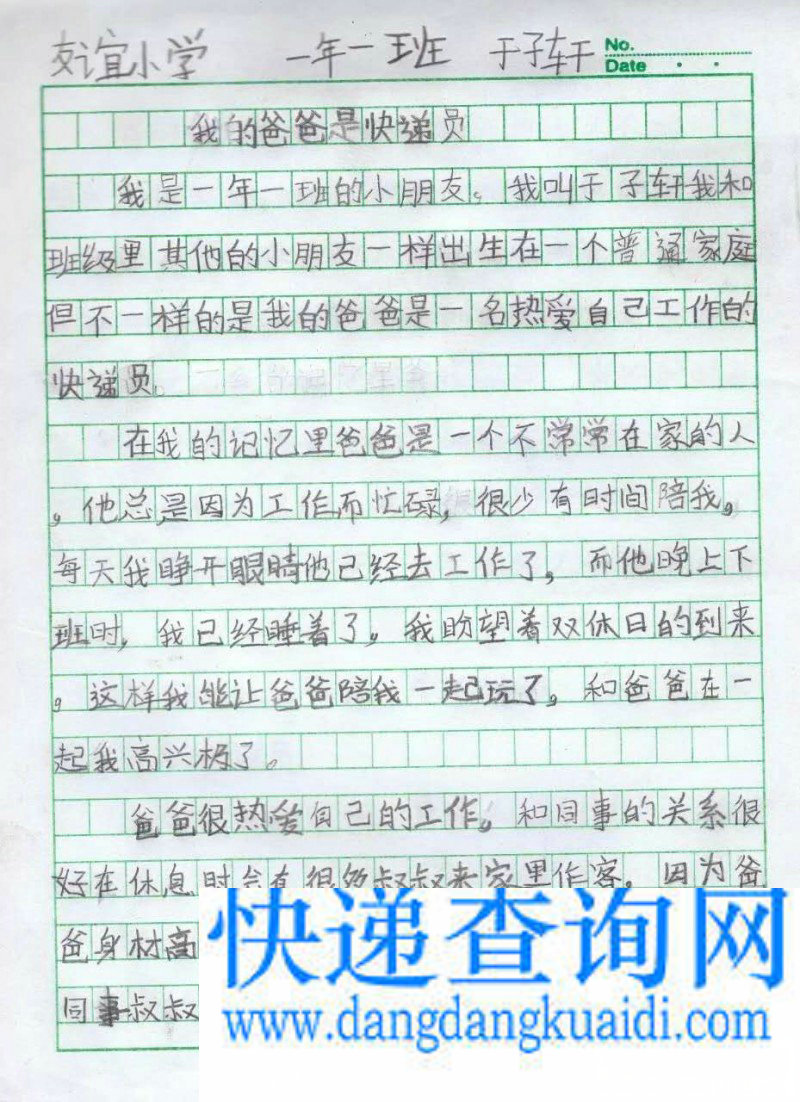 友谊小学 一年一班 于子轩 No.
Date
我的爸爸是快递员
我是一年一班的小朋友。我叫于子轩我和
班级里其他的小朋友一样出生在一个普通家庭
但不一样的是我的爸爸是一名热爱自己工作的
快递员。
在我的记忆里爸爸是一个不常常在家的人
，他总是因为工作而忙碌，很少有时间陪我。
每天我睁开眼睛他已经去工作了，而他晚上下
班时，我已经睡着了。我盼望着双休日的到来
。这样我能让爸爸陪我一起玩了。和爸爸在一
起我高兴极了。
爸爸很热爱自己的工作。和同事的关系很
好在休息时会有很多叔叔来家里作客。因为爸
爸身材高
同事叔叔
快递查询网
www.dangdangkuaidi.com